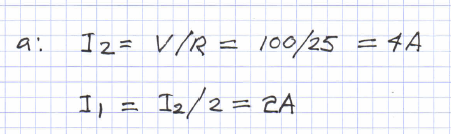 a: I2 = V/R = 100/25 = 4A
I1 = I2/2 = 2A